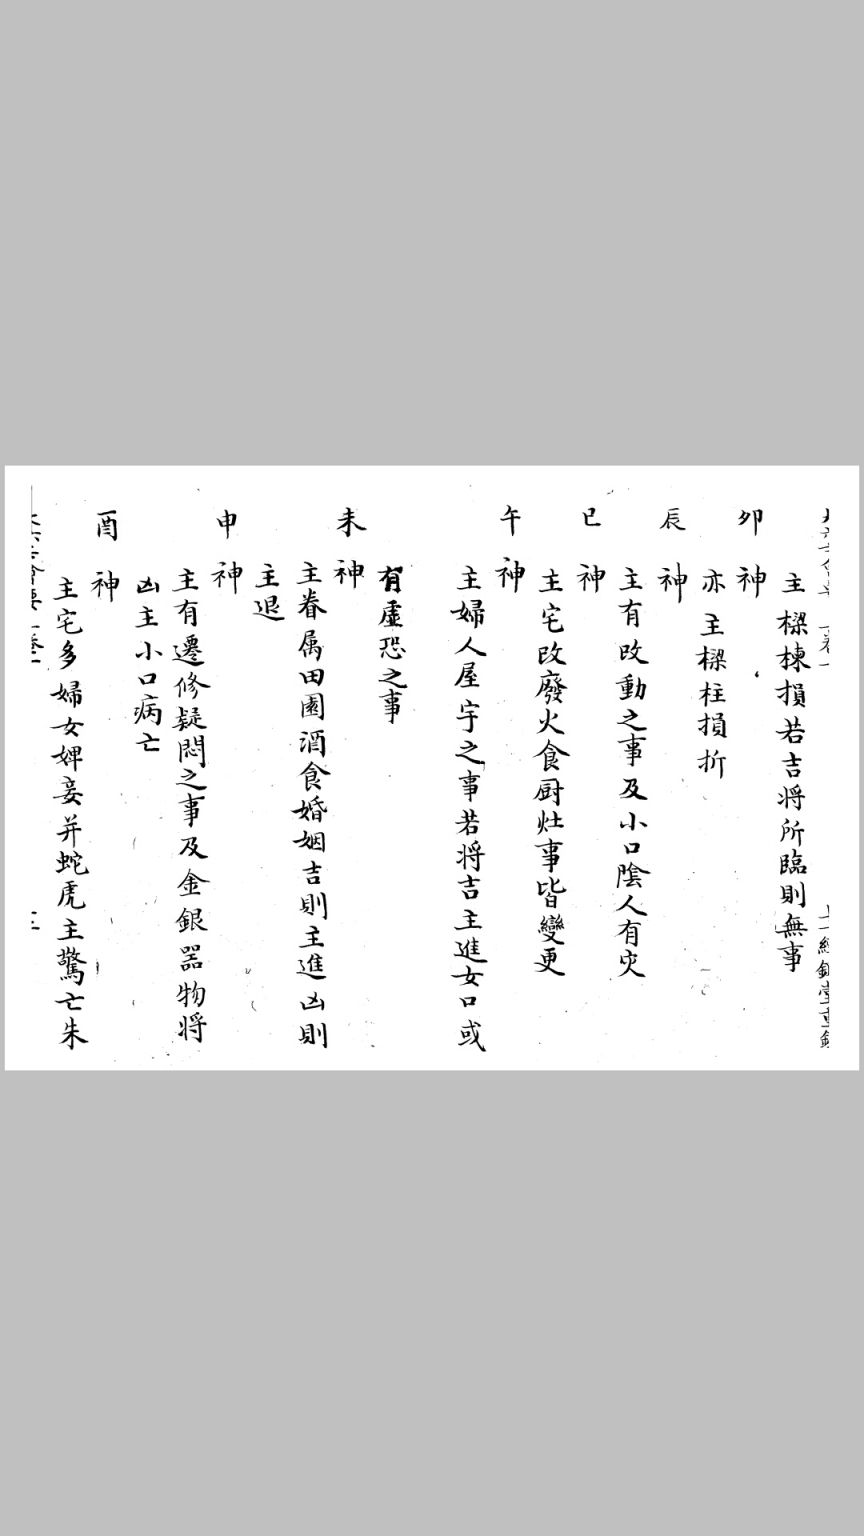 主樑棟損若吉將所臨則無事
卯神
亦主樑柱損折
辰神
主有改動之事及小口陰人有灾
巳神
主宅改廢火食厨灶事皆變更
午神
主婦人屋宇之事若將吉主進女口或
有虛恐之事
未神
主眷属田園酒食婚姻吉則主進凶則
主退
申神
主有遷修疑悶之事及金銀器物將
凶主小口病亡
酉神
主宅多婦女婢妾并蛇虎主驚亡朱